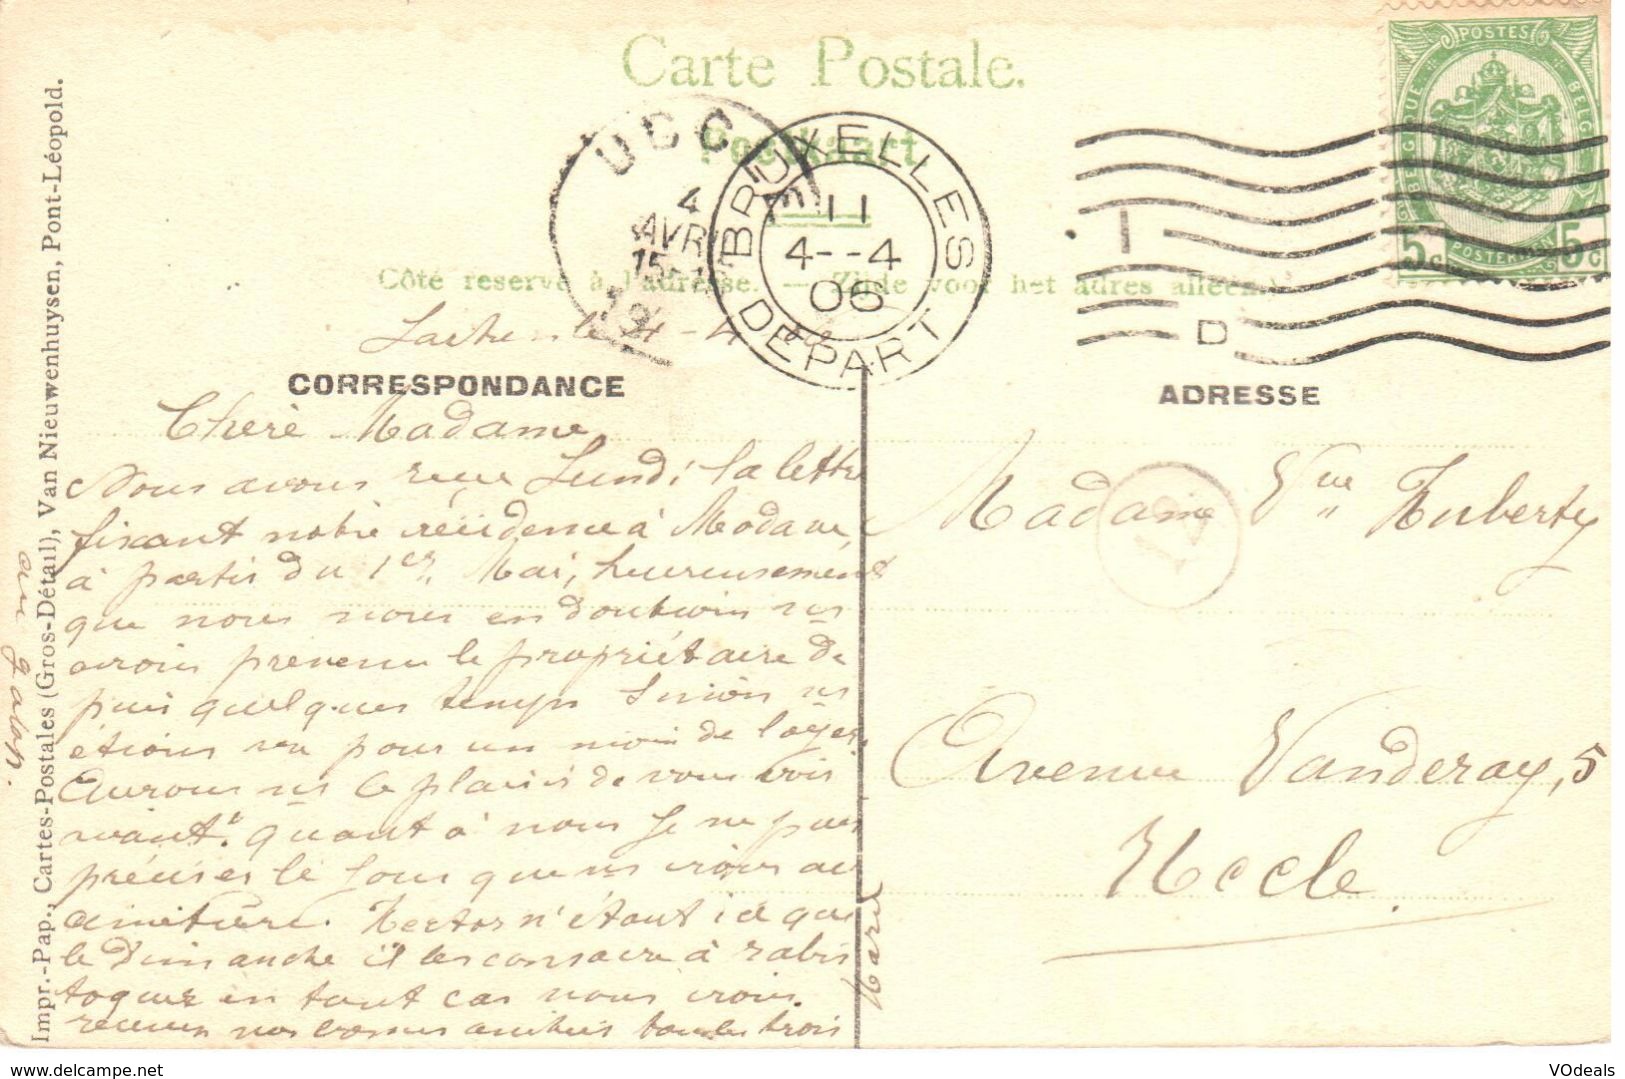 Carte Postale.
Postkaart
Côté reservé à l'adresse. — Zijde voor het adres alleen.
POSTES
BELGIQUE
BELGIE
POSTERIJEN
5c 5c
UCCLE
4
AVR
15
BRUXELLES
11
4--4
06
DEPART
D
Laeken le 4-4
CORRESPONDANCE
ADRESSE
Chère Madame
Nous avons reçu Lundi la lettre
fixant notre résidence à Madame,
à partir du 1er, Mai, heureusement
que nous nous en doutions ns
avons prevenu le propriétaire de
puis quelques temps sinon ns
étions vu pour un mois de loyer.
Aurons ns le plaisir de vous voir
avant? quant à nous je ne puis
préciser le jour que ns irons au
cimetière. Hector n'étant ici que
le Dimanche il les consacre à rabis
toquer en tout cas nous irons.
recevez nos bonnes amitiés tous les trois
Marie
au galop.
Madame Vve Huberty
Avenue Vanderay, 5
Uccle.
Impr.-Pap., Cartes-Postales (Gros-Détail), Van Nieuwenhuysen, Pont-Léopold.
VOdeals